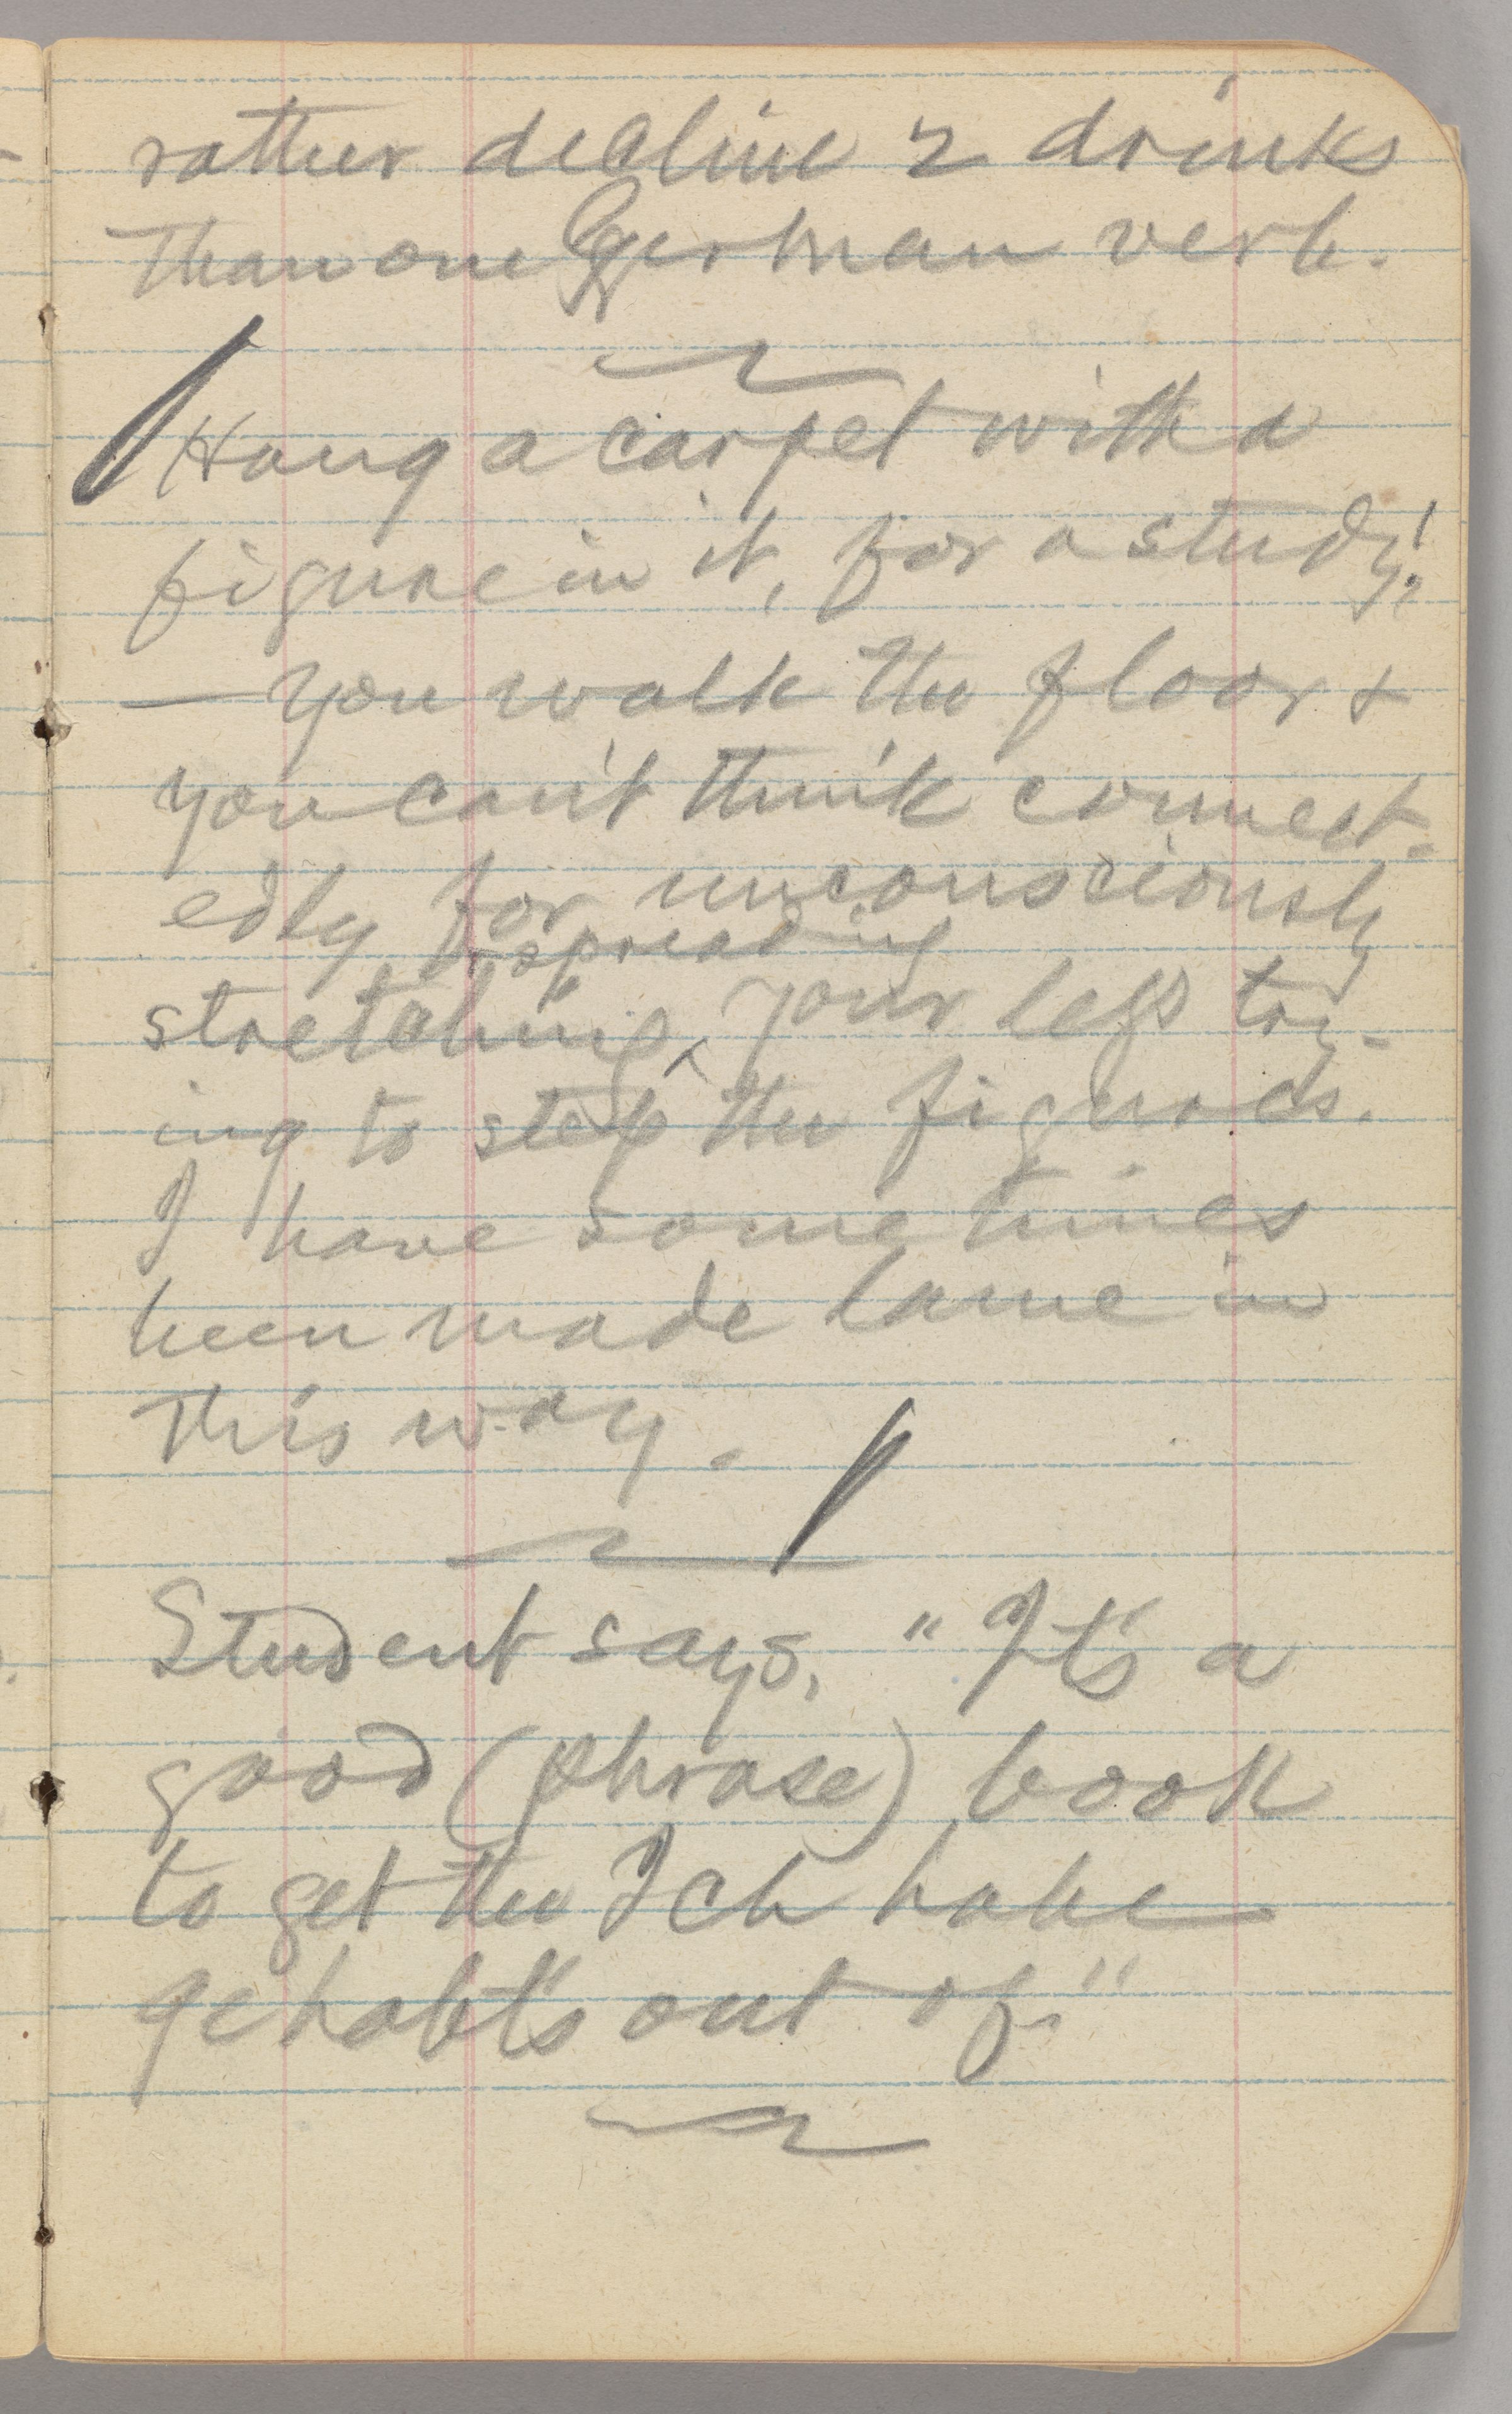 rather decline 2 drinks
than one German verb.
Hang a carpet with a
figure in it, for a study!
— you walk the floor &
you can't think connect-
edly for unconsciously
spreading
stretching ^ your legs try-
ing to step the figures.
I have sometimes
been made lame in
this way.
Student says, "It's a
good (phrase) book
to get the Ich habe
gehabt's out of."